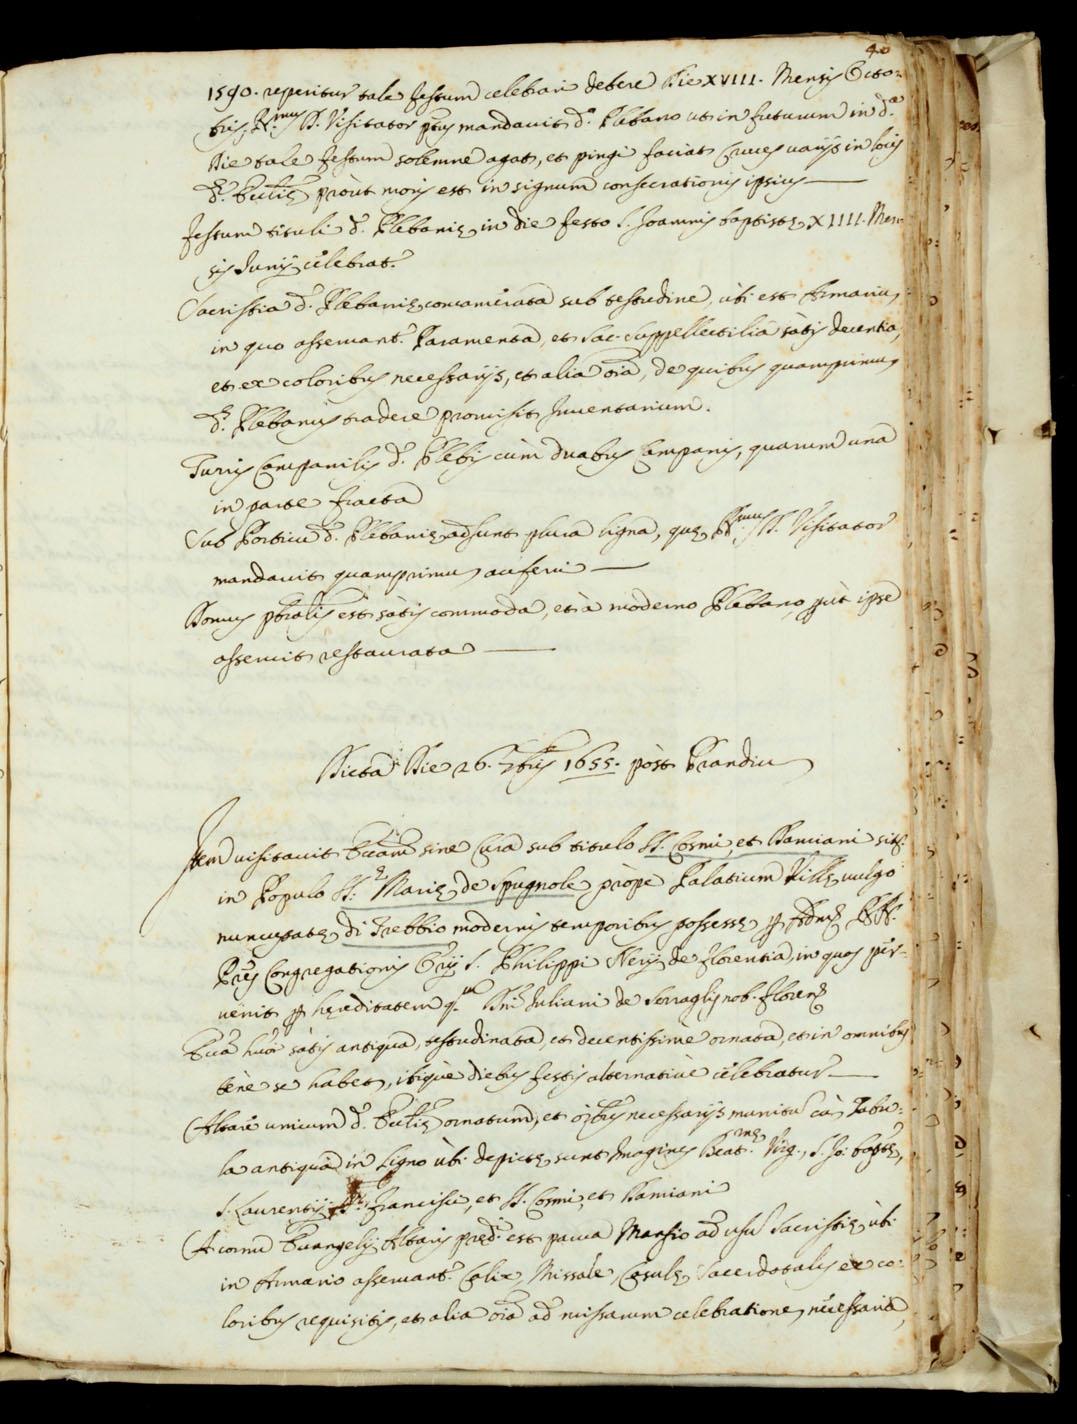 40
1590. reperitur tale festum celebrari debere Die XVIII. Mensis Octo:
bris, R.mus D. Visitator pñs mandavit d.o Plebano ut in futurum in d.a
Die tale festum solemne agat, et pingi faciat Cruces varijs in locis
d.æ Eccl.iæ proùt moris est in signum consecrationis ipsius
Festum tituli d. Plebaniæ in die festo S. Joannis baptistæ XXIIII. Men:
sis Junij celebrat.r
Sacristia d. Plebaniæ concamerata sub testudine, ubi est Armariu,
in quo asservant.r Paramenta, et Sac. Suppellectilia sàtis decentia,
et ex coloribus necessarijs, et alia oĩa, de quibus quamprimu,
d.s Plebanus tradere promisit Inventarium.
Turris Campanilis d. Plebis cùm duabus Campanis, quarum una
in parte fracta
Sub Porticu d. Plebaniæ adsunt plura ligna, quæ R.mus D. Visitator
mandavit quamprimu auferri
Domus p̃b̃ralis est sàtis commoda, et à moderno Plebano, p̃ùt ipse
asseruit restaurata
Dicta Die 26. 7bris 1655. pòst Prandiu
Item visitavit Eccl.am sine Cura sub titulo SS. Cosmi, et Damiani sit.
in Populo S.æ Mariæ de Spugnole, prope Palatium Villæ vulgo
nuncupatæ di Trebbio modernis temporibus possessæ p Adm. RR.
P̃res Congregationis Orij S. Philippi Nerij de Florentia, in quos per:
venit p hæreditatem q.m Dñi Juliani de Serraglis nob. Floren.
Ecc.a huõi sàtis antiqua, testudinata, et decentissimè ornata, et in omnibus
bène se habet, ibique diebus festis alternativè celebratur
Altare unicum d. Eccl.iæ ornatum, et oĩbus necessarijs munitu cù Tabu:
la antiqua in Ligno ùbi depictæ sunt Imagines Beat.mæ Virg., S. Jo: bap.tæ,
S. Laurentij, S. Francisci, et SS. Cosmi, et Damiani
A cornu Evangelij Altaris præd. est parva Mansio ad usu Sacristiæ ùbi
in Armario asservant.r Calix, Missale, Casulæ Sacerdotalis ex co:
loribus requisitis, et alia oĩa ad missarum celebratione, necessaria,